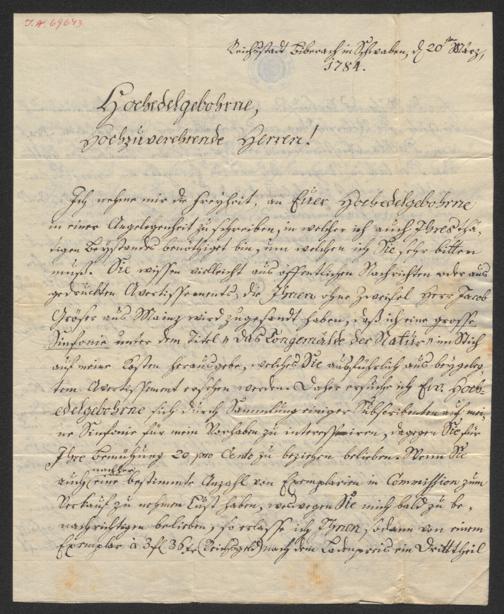 I.N. 69673
Reichsstadt Biberach in Schwaben, d 20ten März,
1784.
Hochedelgebohrne,
Hochzuverehrende Herren!
Ich nehme mir die Freyheit, an Euer Hochedelgebohrne
in einer Angelegenheit zu schreiben, in welcher ich auch Ihres thä-
tigen Beystands benöthiget bin, um welchen ich Sie sehr bitten
muß. Sie wissen vielleicht aus öffentlichen Nachrichten oder aus
gedruckten Avertissements, die Ihnen ohne Zweifel Herr Jacob
aus Mainz wird zugesandt haben, daß ich eine grosse
Sinfonie unter dem Titel: das Tongemälde der Natur: im Stich
auf meine Kosten herausgebe, welches Sie ausführlich aus beygeleg-
tem Avertissement ersehen werden. Daher ersuche ich Ew. Hoch-
edelgebohrne sich durch Sammlung einiger Subscribenten auf mei-
ne Sinfonie für mein Vorhaben zu interessiren, dagegen Sie für
Ihre Bemühung 20 pro Cento zu beziehen belieben. Wenn Sie
auch nachher eine bestimmte Anzahl von Exemplarien in Commission zum
Verkauf zu nehmen Lust haben, weswegen Sie mich bald zu be-
nachrichtigen belieben, so erlasse ich Ihnen, sodann von einem
Exemplar à 3 fl 36 (Reichsgeld) nach dem Ladenpreis ein Drittheil